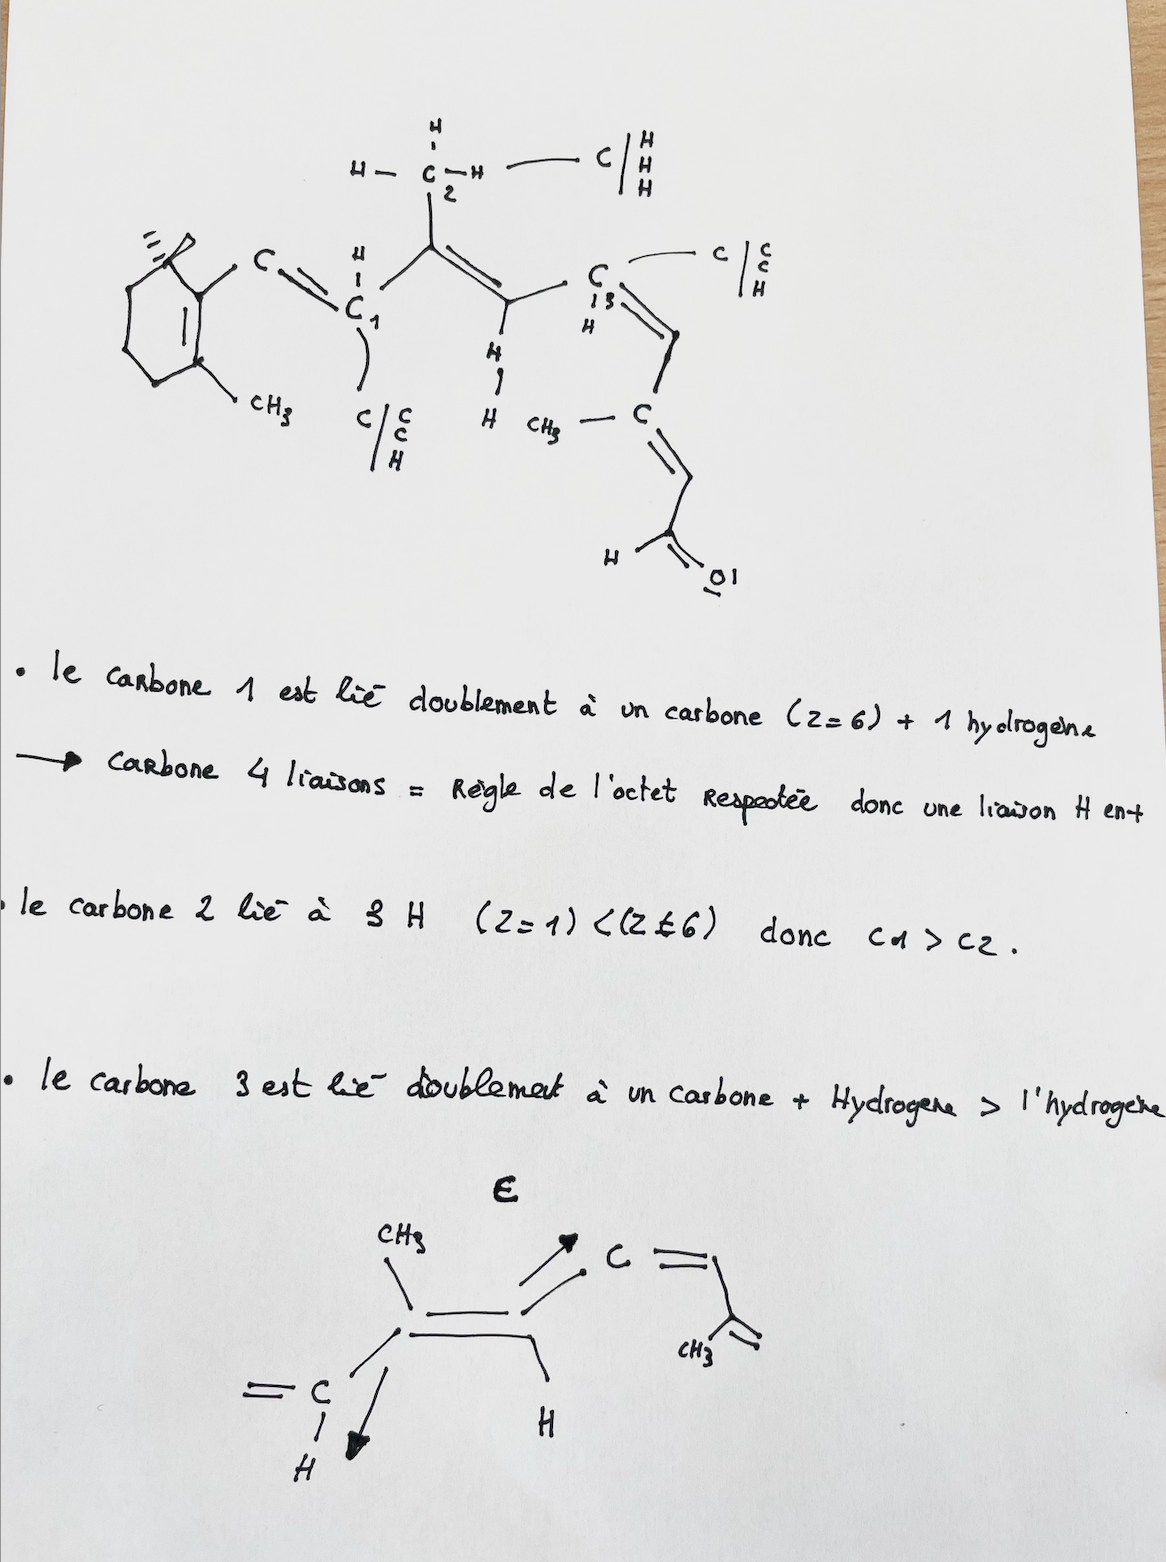 H
H — C — H — C / H
2 H
H
C H C / C
C
C 1 C 3 H
H
H
CH3 C / C H CH3 — C
C
H
H O
• le carbone 1 est lié doublement à un carbone (Z=6) + 1 hydrogène
→ carbone 4 liaisons = Règle de l'octet Respectée donc une liaison H en+
• le carbone 2 lié à 3 H (Z=1) < (Z=6) donc C1 > C2.
• le carbone 3 est lié doublement à un carbone + Hydrogène > l'hydrogène
E
CH3
C
CH3
= C
H
H